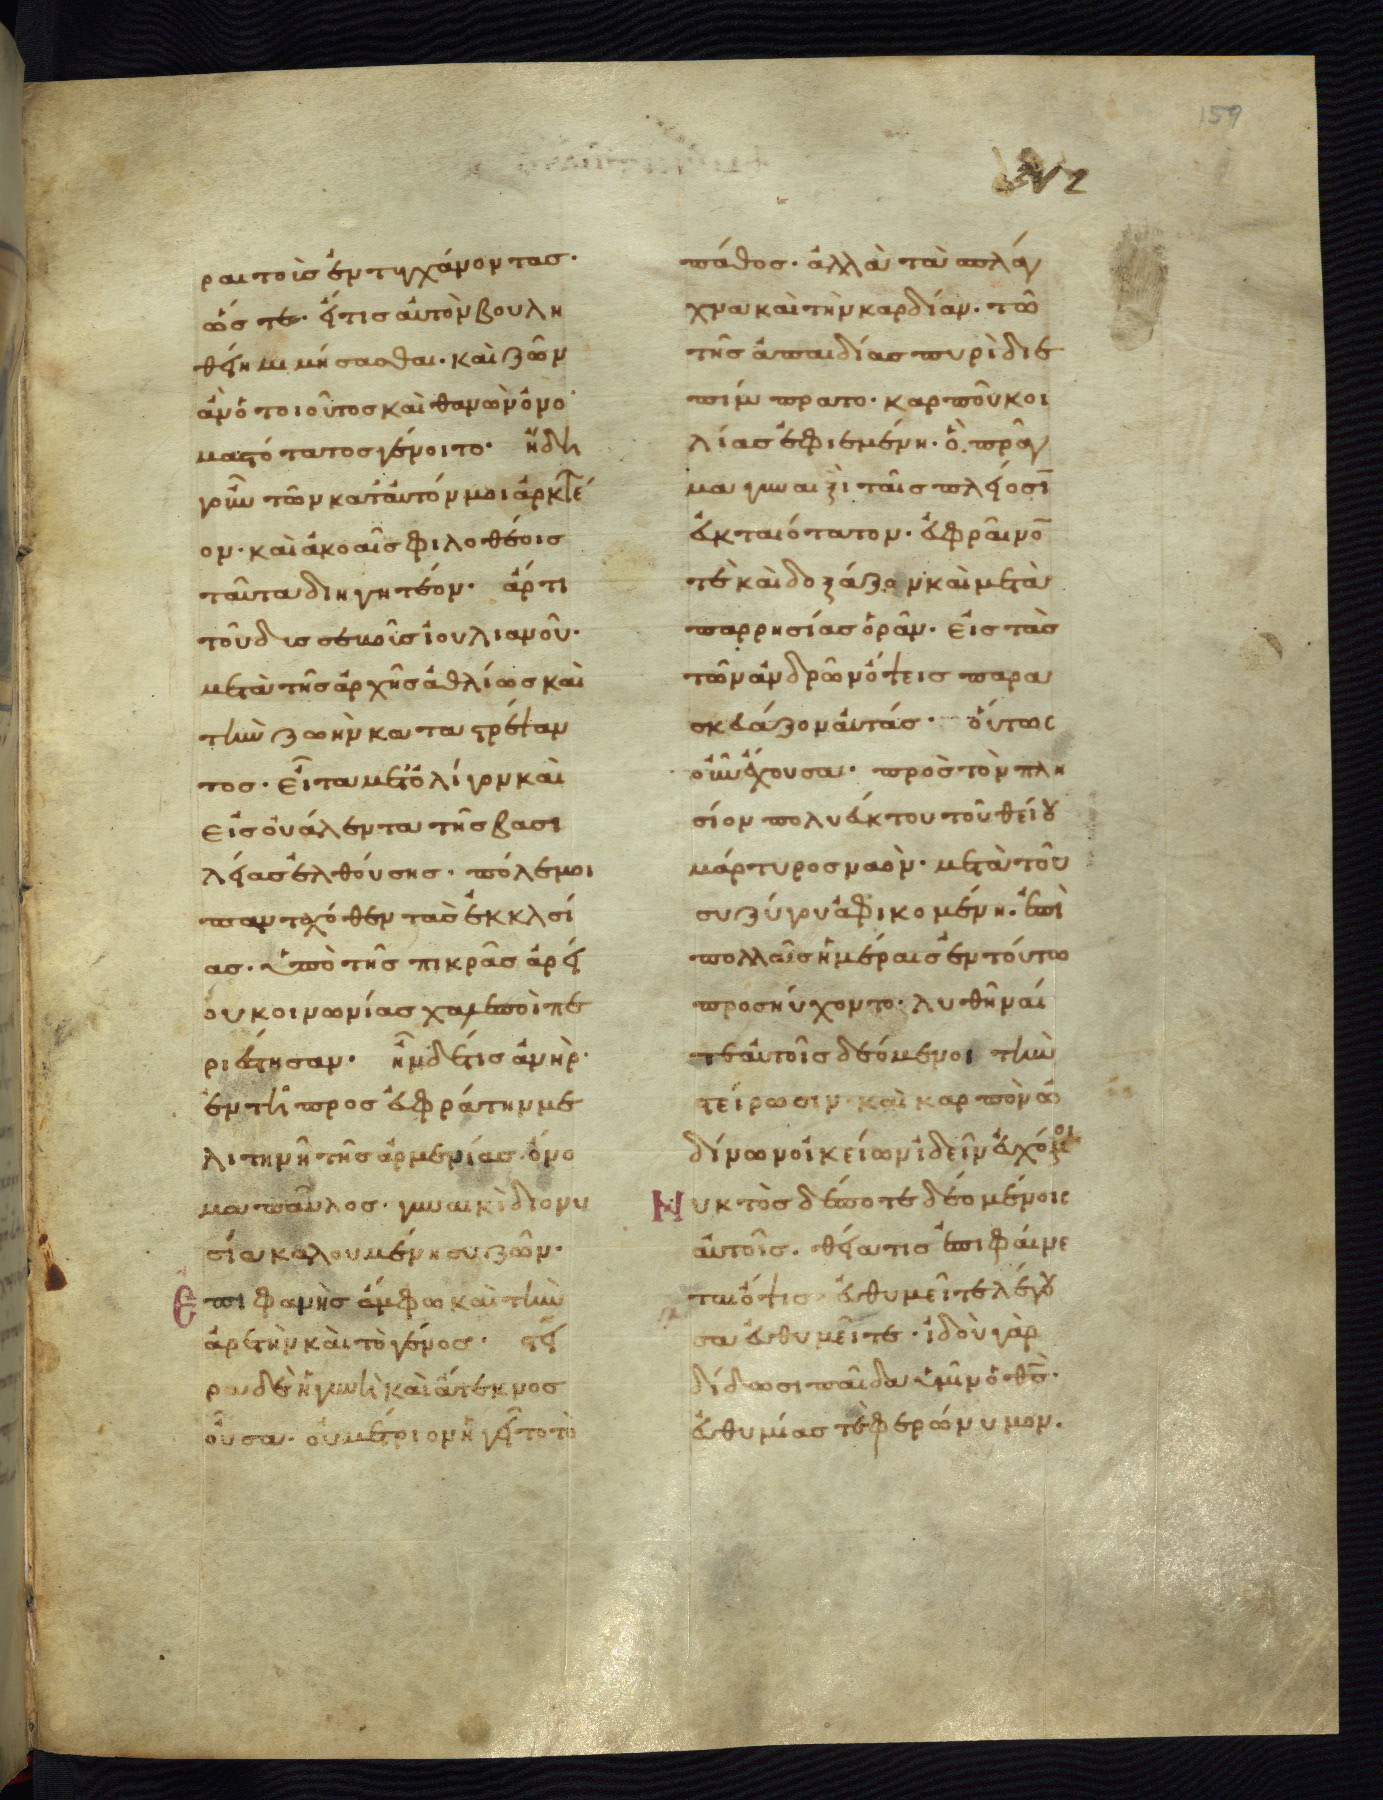 159
ραι τοῖς ἐντυγχάνοντας·
ὥς τε· εἴ τις αὐτὸν βουλη
θείη μιμήσασθαι· καὶ ζῶν
ἂν ὁ τοιοῦτος καὶ θανὼν ὀνο
μαστότατος γένοιτο· ἤδη
γοῦν τῶν κατ' αὐτόν μοι ἀρκτέ
ον· καὶ ἀκοαῖς φιλοθέοις
ταῦτα διηγητέον· ἄρτι
τοῦ δυσσεβοῦς ἰουλιανοῦ·
μετὰ τῆς ἀρχῆς ἀθλίως καὶ
τὴν ζωὴν καταστρέψαν
τος· εἶτα μετ' ὀλίγον καὶ
εἰς οὐάλεντα τῆς βασι
λείας ἐλθούσης· πόλεμοι
πανταχόθεν τὰς ἐκκλησί
ας· ὑπὸ τῆς πικρᾶς ἀρεί
ου κοινωνίας χαλεποὶ πε
ριέστησαν· ἦν δέ τις ἀνὴρ·
ἐν τῇ προς εὐφράτην με
λιτηνῇ τῆς ἀρμενίας· ὄνο
μα παῦλος· γυναικὶ διονυ
σία καλουμένη συζῶν·
Ἐπιφανὴς ἄμφω καὶ τὴν
ἀρετὴν καὶ τὸ γένος· στεῖ
ρα δὲ ἡ γυνὴ καὶ ἄτεκνος
οὖσα· οὐ μέτριον ἡγεῖτο τὸ
πάθος· ἀλλὰ τὰ σπλάγ
χνα καὶ τὴν καρδίαν· τῶ
τῆς ἀπαιδίας πυρὶ διε
πίμπρατο· καρποῦ κοι
λίας ἐφιεμένη· ὃ πρᾶγ
μα γυναιξὶ ταῖς πλείοσιν
εὐκταιότατον· εὐφραῖνον
τὲ καὶ δοξάζον καὶ μετὰ
παρρησίας ὁρᾶν· εἰς τὰς
τῶν ἀνδρῶν ὄψεις παρα
σκευάζον αὐτάς· οὕτως
οὖν ἔχουσα· πρὸς τὸν πλη
σίον πολυεύκτου τοῦ θείου
μάρτυρος ναὸν· μετὰ τοῦ
συζύγου ἀφικομένη· ἐπὶ
πολλαῖς ἡμέραις ἐν τούτω
προσηύχοντο· λυθῆναί
τε αὐτοῖς δεόμενοι τὴν
στείρωσιν· καὶ καρπὸν ὠ
δίνων οἰκείων ἰδεῖν εὐχόμενοι
Νυκτὸς δέ ποτε δεομένοις
αὐτοῖς· θεία τις ἐπιφαίνε
ται ὄψις· εὐθυμεῖτε λέγου
σα εὐθυμεῖτε· ἰδοὺ γὰρ
δίδωσι παῖδα ὑμῖν ὁ θς·
εὐθυμίας τὲ φερώνυμον·